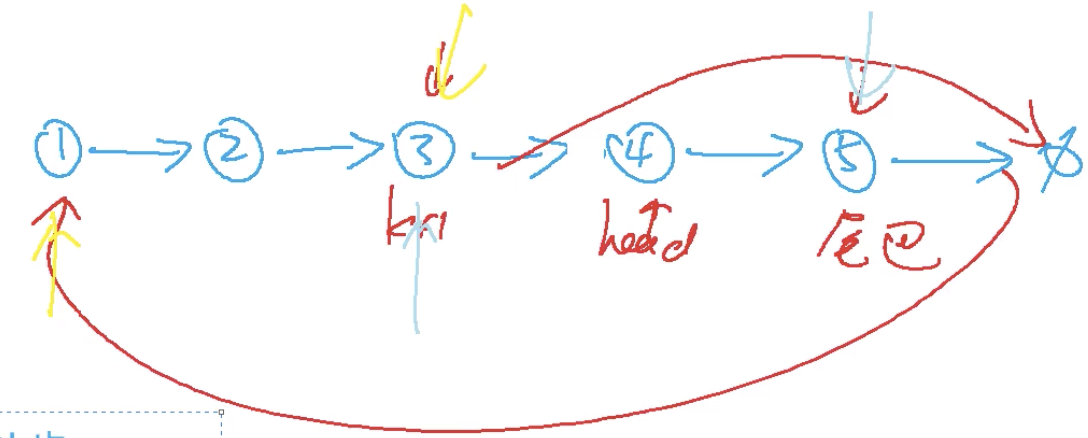 ① ② ③ ④ ⑤
k+1 head 尾巴